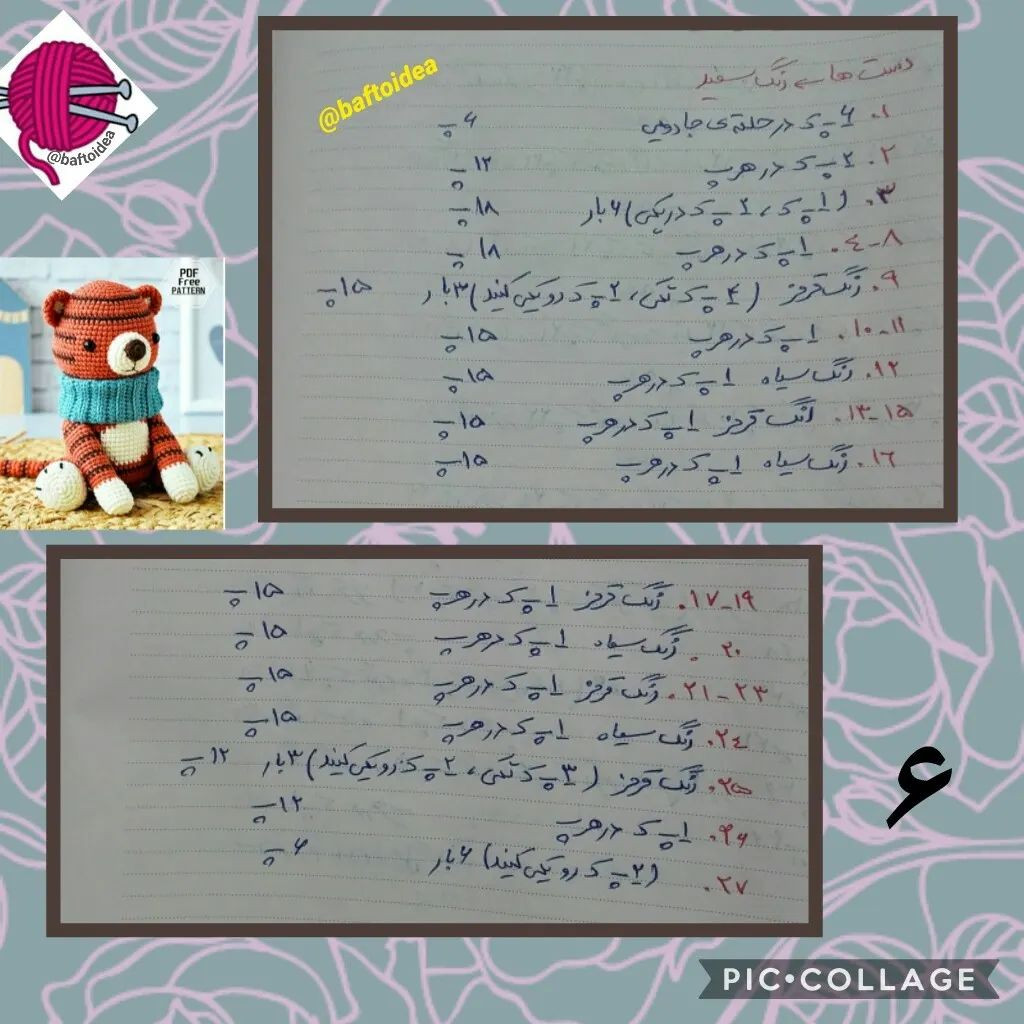 @baftoidea
@baftoidea
PDF
Free
PATTERN
دست هایی رنگ سفید
۱. ۶ پ ک در حلقه ی جادویی ۶ پ
۲. ۲ پ ک در هر پ ۱۲ پ
۳. (۱ پ ک، ۲ پ ک در یکی) ۶ بار ۱۸ پ
۴-۸. ۱ پ ک در هر پ ۱۸ پ
۹. رنگ قرمز (۴ پ ک تکی، ۲ پ ک رو یکی کنید) ۳ بار ۱۵ پ
۱۰-۱۱. ۱ پ ک در هر پ ۱۵ پ
۱۲. رنگ سیاه ۱ پ ک در هر پ ۱۵ پ
۱۳-۱۵. رنگ قرمز ۱ پ ک در هر پ ۱۵ پ
۱۶. رنگ سیاه ۱ پ ک در هر پ ۱۵ پ
۱۷-۱۹. رنگ قرمز ۱ پ ک در هر پ ۱۵ پ
۲۰. رنگ سیاه ۱ پ ک در هر پ ۱۵ پ
۲۱-۲۳. رنگ قرمز ۱ پ ک در هر پ ۱۵ پ
۲۴. رنگ سیاه ۱ پ ک در هر پ ۱۵ پ
۲۵. رنگ قرمز (۳ پ ک تکی، ۲ پ ک رو یکی کنید) ۳ بار ۱۲ پ
۲۶. ۱ پ ک در هر پ ۱۲ پ
۲۷. (۲ پ ک رو یکی کنید) ۶ بار ۶ پ
۶
PIC•COLLAGE